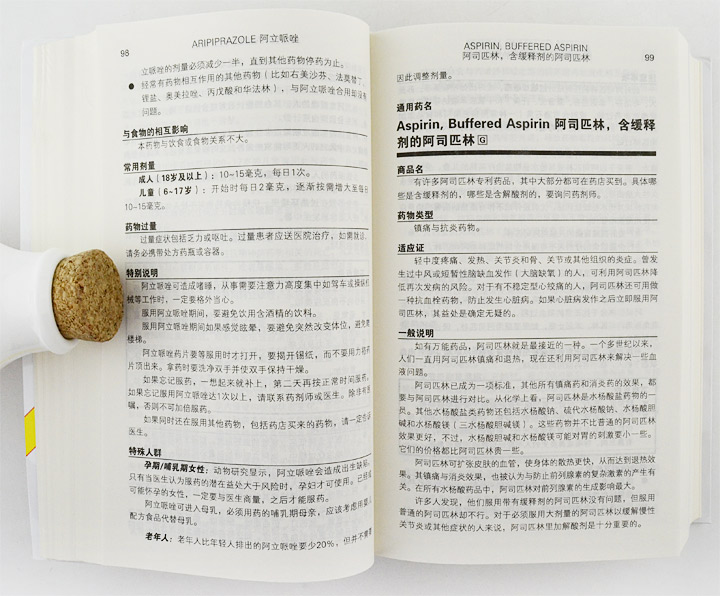 98
ARIPIPRAZOLE 阿立哌唑
立哌唑的剂量必须减少一半，直到其他药物停药为止。
● 经常有药物相互作用的其他药物（比如右美沙芬、法莫替丁、
锂盐、奥美拉唑、丙戊酸和华法林），与阿立哌唑合用却没有
问题。
与食物的相互影响
本药物与饮食或食物关系不大。
常用剂量
成人（18岁及以上）：10~15毫克，每日1次。
儿童（6~17岁）：开始时每日2毫克，逐渐按需增大至每日
10~15毫克。
药物过量
过量症状包括乏力或呕吐。过量患者应送医院治疗，如需就诊，
请务必携带处方药瓶或容器。
特别说明
阿立哌唑可造成嗜睡，从事需要注意力高度集中如驾车或操纵机
械等工作时，一定要格外当心。
服用阿立哌唑期间，要避免饮用含酒精的饮料。
服用阿立哌唑期间如果感觉眩晕，要避免突然改变体位，避免爬
楼梯。
阿立哌唑药片要等服用时才打开，要揭开锡纸，而不要用力将药
片顶出来。拿药时要洗净双手并使双手保持干燥。
如果忘记服药，一想起来就补上，第二天再按正常时间服药。
如果忘记服用阿立哌唑达1次以上，请联系药剂师或医生。除非有医
嘱，否则不可加倍服药。
如果同时还在服用其他药物，包括药店买来的药物，请一定告诉
医生。
特殊人群
孕期/哺乳期女性：动物研究显示，阿立哌唑会造成出生缺陷。
只有当医生认为服药的潜在益处大于风险时，孕妇才可使用。已经或
可能怀孕的女性，一定要与医生商量，之后才能服药。
阿立哌唑可进入母乳，必须用药的哺乳期母亲，应该考虑用婴儿
配方食品代替母乳。
老年人：老年人比年轻人排出的阿立哌唑要少20%，但并不需要
ASPIRIN, BUFFERED ASPIRIN
阿司匹林，含缓释剂的阿司匹林
99
因此调整剂量。
通用药名
Aspirin, Buffered Aspirin 阿司匹林，含缓释
剂的阿司匹林 G
商品名
有许多阿司匹林专利药品，其中大部分都可在药店买到。具体哪
些是含缓释剂的，哪些是含解酸剂的，要询问药剂师。
药物类型
镇痛与抗炎药物。
适应证
轻中度疼痛、发热、关节炎和骨、关节或其他组织的炎症。曾发
生过中风或短暂性脑缺血发作（大脑缺氧）的人，可利用阿司匹林降
低再次发病的风险。对于有不稳定型心绞痛的人，阿司匹林还可用做
一种抗血栓药物，防止发生心脏病。如果心脏病发作之后立即服用阿
司匹林，其益处是确定无疑的。
一般说明
如有万能药品，阿司匹林就是最接近的一种。一个多世纪以来，
人们一直用阿司匹林镇痛和退热，现在还利用阿司匹林来解决一些血
液问题。
阿司匹林已成为一项标准，其他所有镇痛药和消炎药的效果，都
要与阿司匹林进行对比。从化学上看，阿司匹林是水杨酸盐药物的一
员。其他水杨酸盐类药物还包括水杨酸钠、硫代水杨酸钠、水杨酸胆
碱和水杨酸镁（三水杨酸胆碱镁）。这些药并不比普通的阿司匹林
效果更好，不过，水杨酸胆碱和水杨酸镁可能对胃的刺激要小一些。
它们的价格都比阿司匹林贵一些。
阿司匹林可扩张皮肤的血管，使身体的散热更快，从而达到退热效
果。其镇痛与消炎效果，也被认为与防止前列腺素的复杂激素的产生有
关。在所有水杨酸药品中，阿司匹林对前列腺素的生成影响最大。
许多人发现，他们服用带有缓释剂的阿司匹林没有问题，但服用
普通的阿司匹林却不行。对于必须服用大剂量的阿司匹林以缓解慢性
关节炎或其他症状的人来说，阿司匹林里加解酸剂是十分重要的。